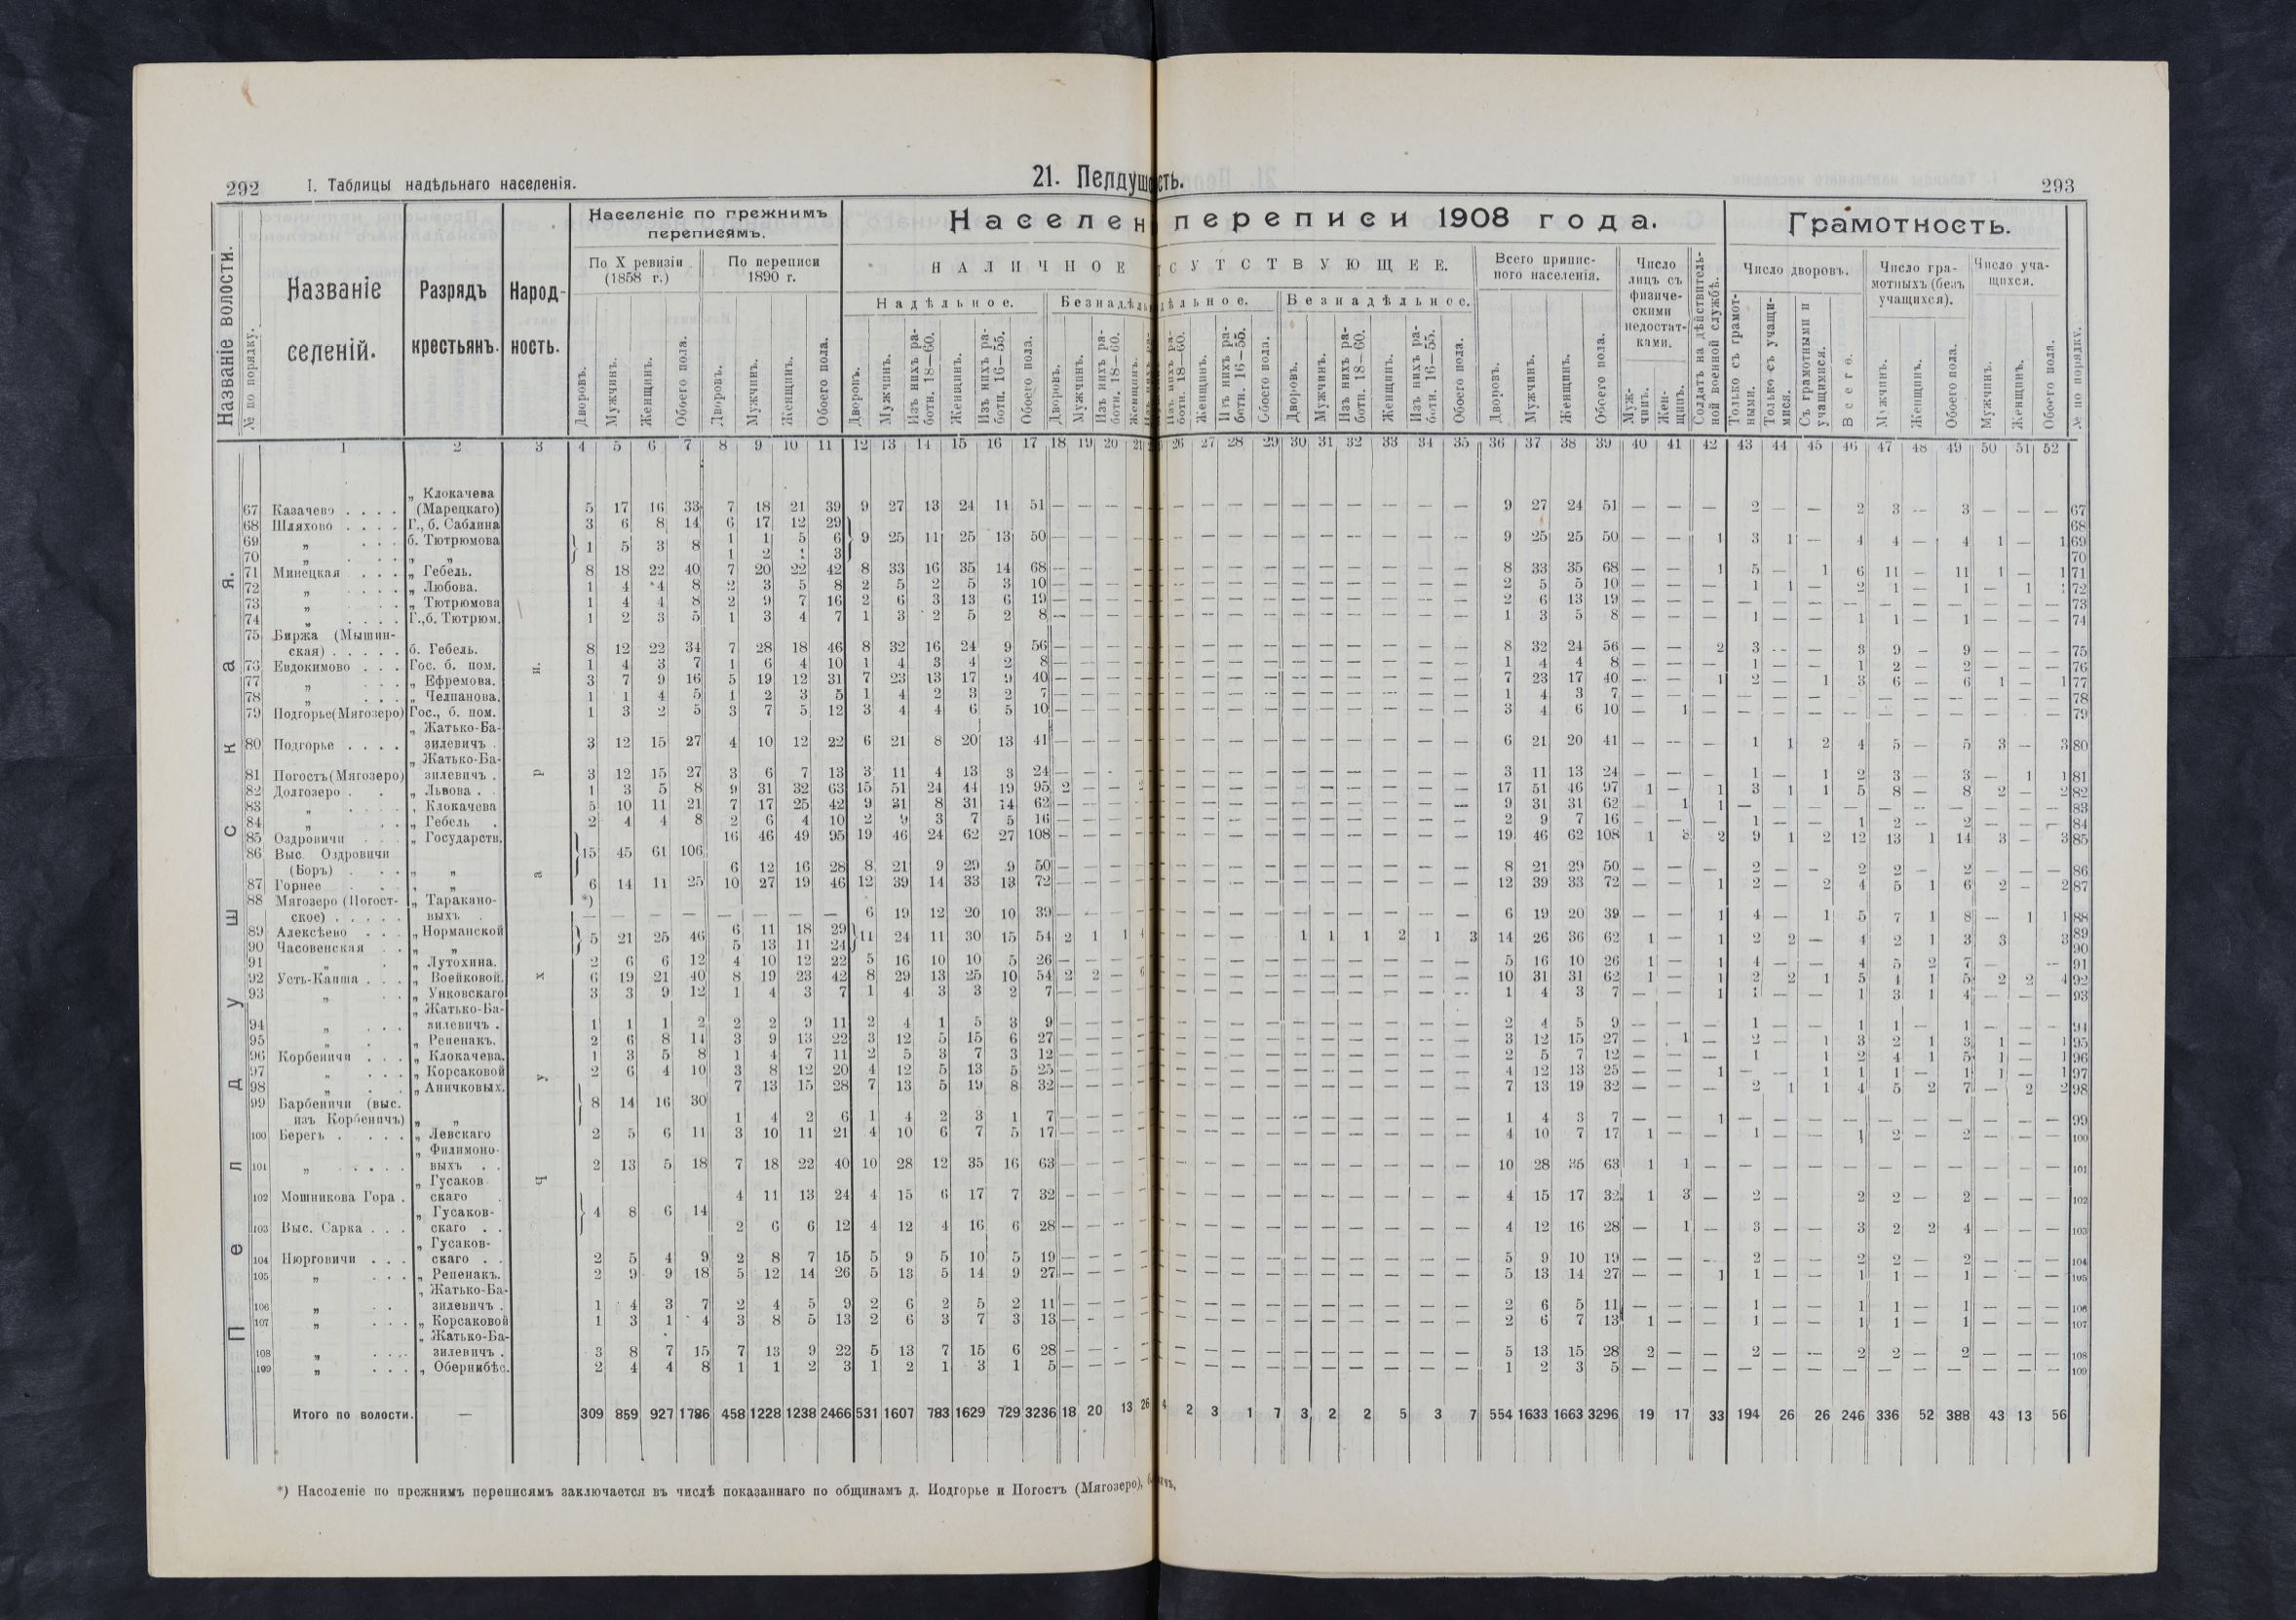 292
I. Таблицы надѣльнаго населенія.
21. Пелдуш сть.
293
Названіе волости.
№ по порядку.
Названіе селеній.
Разрядъ крестьянъ.
Народность.
Населеніе по прежнимъ переписямъ.
По X ревизіи (1858 г.)
По переписи 1890 г.
Населен переписи 1908 года.
НАЛИЧНОЕ
СУТСТВУЮЩЕЕ.
Надѣльное.
Безнадѣль
дѣльное.
Безнадѣльное.
Всего приписного населенія.
Число лицъ съ физическими недостатками.
Солдатъ на дѣйствительной военной службѣ.
Грамотность.
Число дворовъ.
Число грамотныхъ (безъ учащихся).
Число учащихся.
1 2 3 4 5 6 7 8 9 10 11 12 13 14 15 16 17 18 19 20 21 26 27 28 29 30 31 32 33 34 35 36 37 38 39 40 41 42 43 44 45 46 47 48 49 50 51 52
Пелдушская.
Чухари.
„ Клокачева
67 Казачево . . . . (Марецкаго) 5 17 16 33 7 18 21 39 9 27 13 24 11 51 — 9 27 24 51 — — — 2 — — 2 3 — 3 — — — 67
68 Шляхово . . . . Г., б. Саблина 3 6 8 14 6 17 12 29 68
69 „ . . . б. Тютрюмова 1 5 3 8 1 1 5 6 9 25 11 25 13 50 — 9 25 25 50 — — 1 3 1 — 4 4 — 4 1 — 1 69
70 „ . . . „ „ 1 2 1 3 70
71 Минецкая . . . „ Гебель. 8 18 22 40 7 20 22 42 8 33 16 35 14 68 — 8 33 35 68 — — 1 5 — 1 6 11 — 11 1 — 1 71
72 „ . . . . „ Любова. 1 4 4 8 2 3 5 8 2 5 2 5 3 10 — 2 5 5 10 — — — 1 1 — 2 1 — 1 — 1 1 72
73 „ . . „ Тютрюмова 1 4 4 8 2 9 7 16 2 6 3 13 6 19 — 2 6 13 19 — — — — — — — — — — — — — 73
74 „ . . . . Г.,б. Тютрюм. 1 2 3 5 1 3 4 7 1 3 2 5 2 8 — 1 3 5 8 — — — 1 — — 1 1 — 1 — — — 74
75 Биржа (Мышинская) . . . . . б. Гебель. 8 12 22 34 7 28 18 46 8 32 16 24 9 56 — 8 32 24 56 — — 2 3 — — 3 9 — 9 — — — 75
76 Евдокимово . . . Гос. б. пом. 1 4 3 7 1 6 4 10 1 4 3 4 2 8 — 1 4 4 8 — — — 1 — — 1 2 — 2 — — — 76
77 „ . . . „ Ефремова. 3 7 9 16 5 19 12 31 7 23 13 17 9 40 — 7 23 17 40 — — 1 2 — 1 3 6 — 6 1 — 1 77
78 „ . . . „ Челпанова. 1 1 4 5 1 2 3 5 1 4 2 3 2 7 — 1 4 3 7 — — — — — — — — — — — — — 78
79 Подгорье(Мягозеро) Гос., б. пом. 1 3 2 5 3 7 5 12 3 4 4 6 5 10 — 3 4 6 10 — 1 — — — — — — — — — — 79
„ Жатько-Ба-
80 Подгорье . . . . зилевичъ . 3 12 15 27 4 10 12 22 6 21 8 20 13 41 — 6 21 20 41 — — — 1 1 2 4 5 — 5 3 — 3 80
„ Жатько-Ба-
81 Погостъ(Мягозеро) зилевичъ . 3 12 15 27 3 6 7 13 3 11 4 13 3 24 — 3 11 13 24 — — — 1 — 1 2 3 — 3 — 1 1 81
82 Долгозеро . . „ Львова . . 1 3 5 8 9 31 32 63 15 51 24 44 19 95 2 — — 2 — 17 51 46 97 1 — 1 3 1 1 5 8 — 8 2 — 2 82
83 „ . . . . Клокачева 5 10 11 21 7 17 25 42 9 31 8 31 14 62 — 9 31 31 62 — 1 1 — — — — — — — — — — 83
84 „ . . „ Гебель . 2 4 4 8 2 6 4 10 2 9 3 7 5 16 — 2 9 7 16 — — — 1 — — 1 2 — 2 — — — 84
85 Оздровичи . . . „ Государств. 15 45 61 106 16 46 49 95 19 46 24 62 27 108 — 19 46 62 108 1 3 2 9 1 2 12 13 1 14 3 — 3 85
86 Выс. Оздровичи (Боръ) . . . „ „ 6 12 16 28 8 21 9 29 9 50 — 8 21 29 50 — — — 2 — — 2 2 — 2 — — — 86
87 Горнее . . . „ 6 14 11 25 10 27 19 46 12 39 14 33 13 72 — 12 39 33 72 — — 1 2 — 2 4 5 1 6 2 — 2 87
88 Мягозеро (Погостское) . . . . . „ Таракановыхъ . *) — — — — — — — — 6 19 12 20 10 39 — 6 19 20 39 — — 1 4 — 1 5 7 1 8 — 1 1 88
89 Алексѣево . . . „ Норманской 5 21 25 46 6 11 18 29 11 24 11 30 15 54 2 1 1 4 1 1 1 2 1 3 14 26 36 62 1 — 1 2 2 — 4 2 1 3 3 3 89
90 Часовенская . . „ „ 5 13 11 24 90
91 „ . „ Лутохина. 2 6 6 12 4 10 12 22 5 16 10 10 5 26 — 5 16 10 26 1 — 1 4 — — 4 5 2 7 — — 91
92 Усть-Капша . . . „ Воейковой. 6 19 21 40 8 19 23 42 8 29 13 25 10 54 2 2 — 6 — 10 31 31 62 1 — 1 2 2 1 5 4 1 5 2 2 4 92
93 „ . . „ Унковскаго 3 3 9 12 1 4 3 7 1 4 3 3 2 7 — 1 4 3 7 — — 1 1 — — 1 3 1 4 — — — 93
„ Жатько-Ба-
94 „ . . . зилевичъ . 1 1 1 2 2 2 9 11 2 4 1 5 3 9 — 2 4 5 9 — — — 1 — — 1 1 — 1 — — — 94
95 „ . „ Репенакъ. 2 6 8 14 3 9 13 22 3 12 5 15 6 27 — 3 12 15 27 — 1 — 2 — 1 3 2 1 3 1 — 1 95
96 Корбеничи . . . „ Клокачева. 1 3 5 8 1 4 7 11 2 5 3 7 3 12 — 2 5 7 12 — — — 1 1 2 4 1 5 1 — 1 96
97 „ . . . „ Корсаковой 2 6 4 10 3 8 12 20 4 12 5 13 5 25 — 4 12 13 25 — — 1 — — 1 1 1 — 1 1 — 1 97
98 „ . . „ Аничковых. 8 14 16 30 7 13 15 28 7 13 5 19 8 32 — 7 13 19 32 — — — 2 1 1 4 5 2 7 — 2 2 98
99 Барбеничи (выс. изъ Корбеничъ) „ „ 1 4 2 6 1 4 2 3 1 7 — 1 4 3 7 — — 1 — — — — — — — — — — 99
100 Берегъ . . . . . „ Левскаго 2 5 6 11 3 10 11 21 4 10 6 7 5 17 — 4 10 7 17 1 — — 1 — — 1 2 — 2 — — — 100
„ Филимоно-
101 „ . . . . . выхъ . . 2 13 5 18 7 18 22 40 10 28 12 35 16 63 — 10 28 35 63 1 1 — — — — — — — — — — — 101
„ Гусаков
102 Мошникова Гора . скаго . 4 8 6 14 4 11 13 24 4 15 6 17 7 32 — 4 15 17 32 1 3 — 2 — 2 2 — 2 — — — 102
„ Гусаков-
103 Выс. Сарка . . . скаго . . 2 6 6 12 4 12 4 16 6 28 — 4 12 16 28 — 1 — 3 — — 3 2 2 4 — — — 103
„ Гусаков-
104 Нюрговичи . . . скаго . . 2 5 4 9 2 8 7 15 5 9 5 10 5 19 — 5 9 10 19 — — — 2 — — 2 2 — 2 — — — 104
105 „ . . . „ Репенакъ. 2 9 9 18 5 12 14 26 5 13 5 14 9 27 — 5 13 14 27 — — 1 1 — — 1 1 — 1 — — — 105
„ Жатько-Ба-
106 „ . . зилевичъ . 1 4 3 7 2 4 5 9 2 6 2 5 2 11 — 2 6 5 11 — — — 1 — — 1 1 — 1 — — — 106
107 „ . . . „ Корсаковой 1 3 1 4 3 8 5 13 2 6 3 7 3 13 — 2 6 7 13 1 — — 1 — — 1 1 — 1 — — — 107
„ Жатько-Ба-
108 „ . . . зилевичъ . 3 8 7 15 7 13 9 22 5 13 7 15 6 28 — 5 13 15 28 2 — — 2 — — 2 2 — 2 — — — 108
109 „ . . . „ Обернибѣс. 2 4 4 8 1 1 2 3 1 2 1 3 1 5 — 1 2 3 5 — — — — — — — — — — — — — 109
Итого по волости. — 309 859 927 1786 458 1228 1238 2466 531 1607 783 1629 729 3236 18 20 13 26 4 2 3 1 7 3 2 2 5 3 7 554 1633 1663 3296 19 17 33 194 26 26 246 336 52 388 43 13 56
*) Населеніе по прежнимъ переписямъ заключается въ числѣ показаннаго по общинамъ д. Подгорье и Погостъ (Мягозеро),